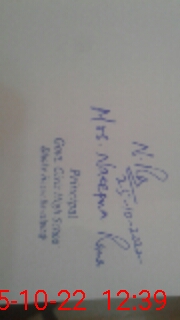 N.Ra
25-10-2022
Mrs. Naseem Rana
Principal
Govt. Girls High School
5-10-22 12:39